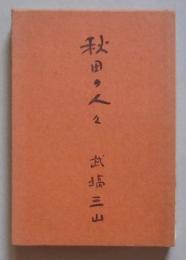 秋田の人々
武塙三山